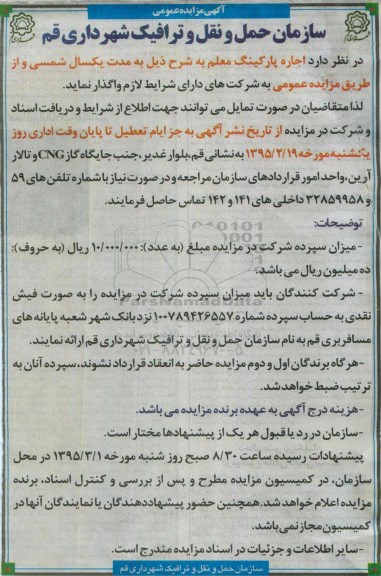 آگهی مزایده عمومی
سازمان حمل و نقل و ترافیک شهرداری قم
در نظر دارد اجاره پارکینگ معلم به شرح ذیل به مدت یکسال شمسی و از
طریق مزایده عمومی به شرکت های دارای شرایط لازم واگذار نماید.
لذا متقاضیان در صورت تمایل می توانند جهت اطلاع از شرایط و دریافت اسناد
و شرکت در مزایده از تاریخ نشر آگهی به جز ایام تعطیل تا پایان وقت اداری روز
یکشنبه مورخه ۱۳۹۵/۲/۱۹ به نشانی قم، بلوار غدیر، جنب جایگاه گاز CNG و تالار
آرین، واحد امور قراردادهای سازمان مراجعه و در صورت نیاز با شماره تلفن های ۵۹
و ۳۲۸۵۹۹۵۸ داخلی های ۱۴۱ و ۱۴۲ تماس حاصل فرمایند.
توضیحات:
-میزان سپرده شرکت در مزایده مبلغ (به عدد): ۱۰/۰۰۰/۰۰۰ ریال (به حروف):
ده میلیون ریال می باشد.
- شرکت کنندگان باید میزان سپرده شرکت در مزایده را به صورت فیش
نقدی به حساب سپرده شماره ۱۰۰۷۸۹۴۲۶۵۵۷ نزد بانک شهر شعبه پایانه های
مسافربری قم به نام سازمان حمل و نقل و ترافیک شهرداری قم ارائه نمایند.
-هر گاه برندگان اول و دوم مزایده حاضر به انعقاد قرارداد نشوند، سپرده آنان به
ترتیب ضبط خواهد شد.
-هزینه درج آگهی به عهده برنده مزایده می باشد.
-سازمان در رد یا قبول هر یک از پیشنهادها مختار است.
پیشنهادات رسیده ساعت ۸/۳۰ صبح روز شنبه مورخه ۱۳۹۵/۳/۱ در محل
سازمان، در کمیسیون مزایده مطرح و پس از بررسی و کنترل اسناد، برنده
مزایده اعلام خواهد شد. همچنین حضور پیشنهاددهندگان یا نمایندگان آنها در
کمیسیون مجاز نمی باشد.
-سایر اطلاعات و جزئیات در اسناد مزایده مندرج است.
سازمان حمل و نقل و ترافیک شهرداری قم